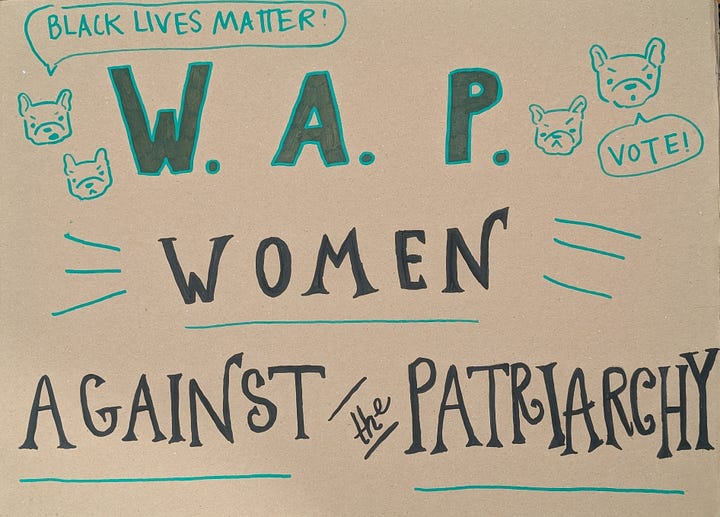 BLACK LIVES MATTER!
W. A. P.
VOTE!
WOMEN
AGAINST the PATRIARCHY